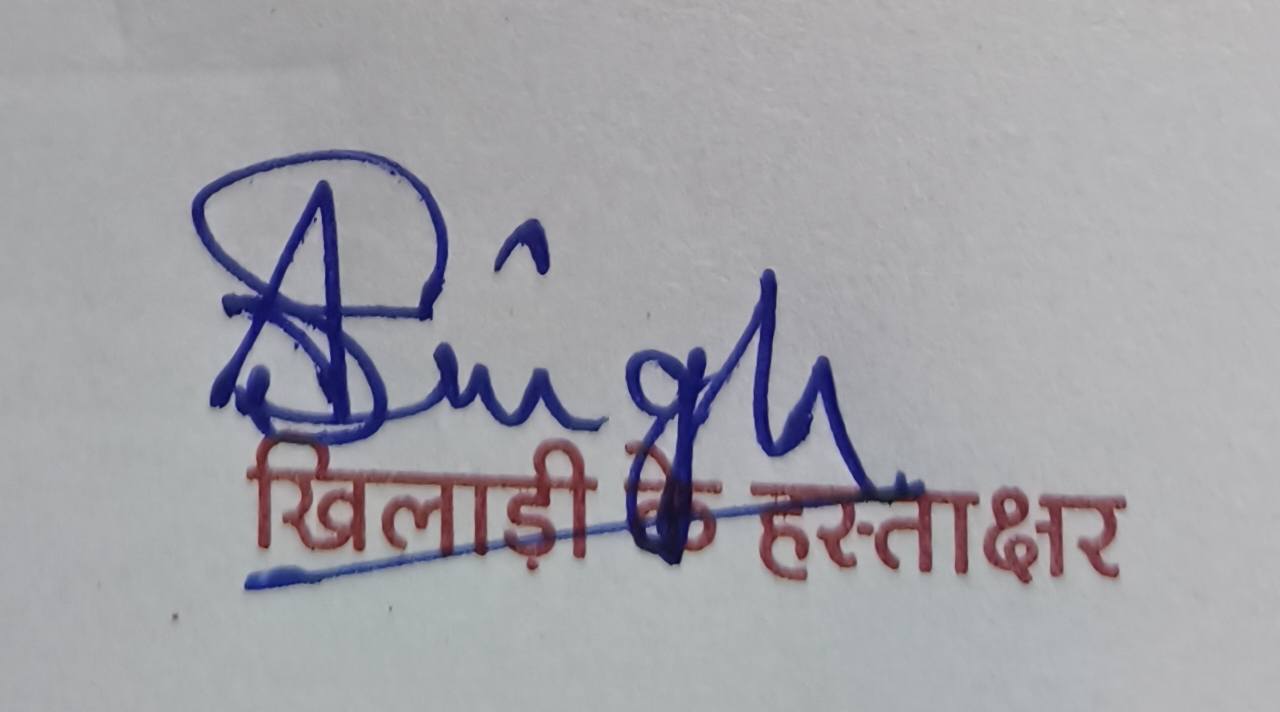 ASingh
खिलाड़ी के हस्ताक्षर